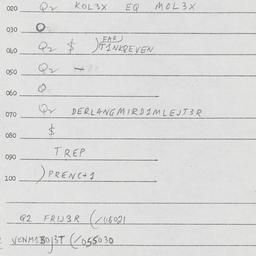 020 Q2 KOL3X EQ MOL3X
030 O
040 Q2 $ )T1NKREVEN
EAR
050 Q2 -
060 O
070 Q2 DERLANGMIRD1MLEJT3R
080 $
090 TREP
100 )PRENC+1
Q2 FRIJ3R (/08021
VENM1BOJ3T (/055030